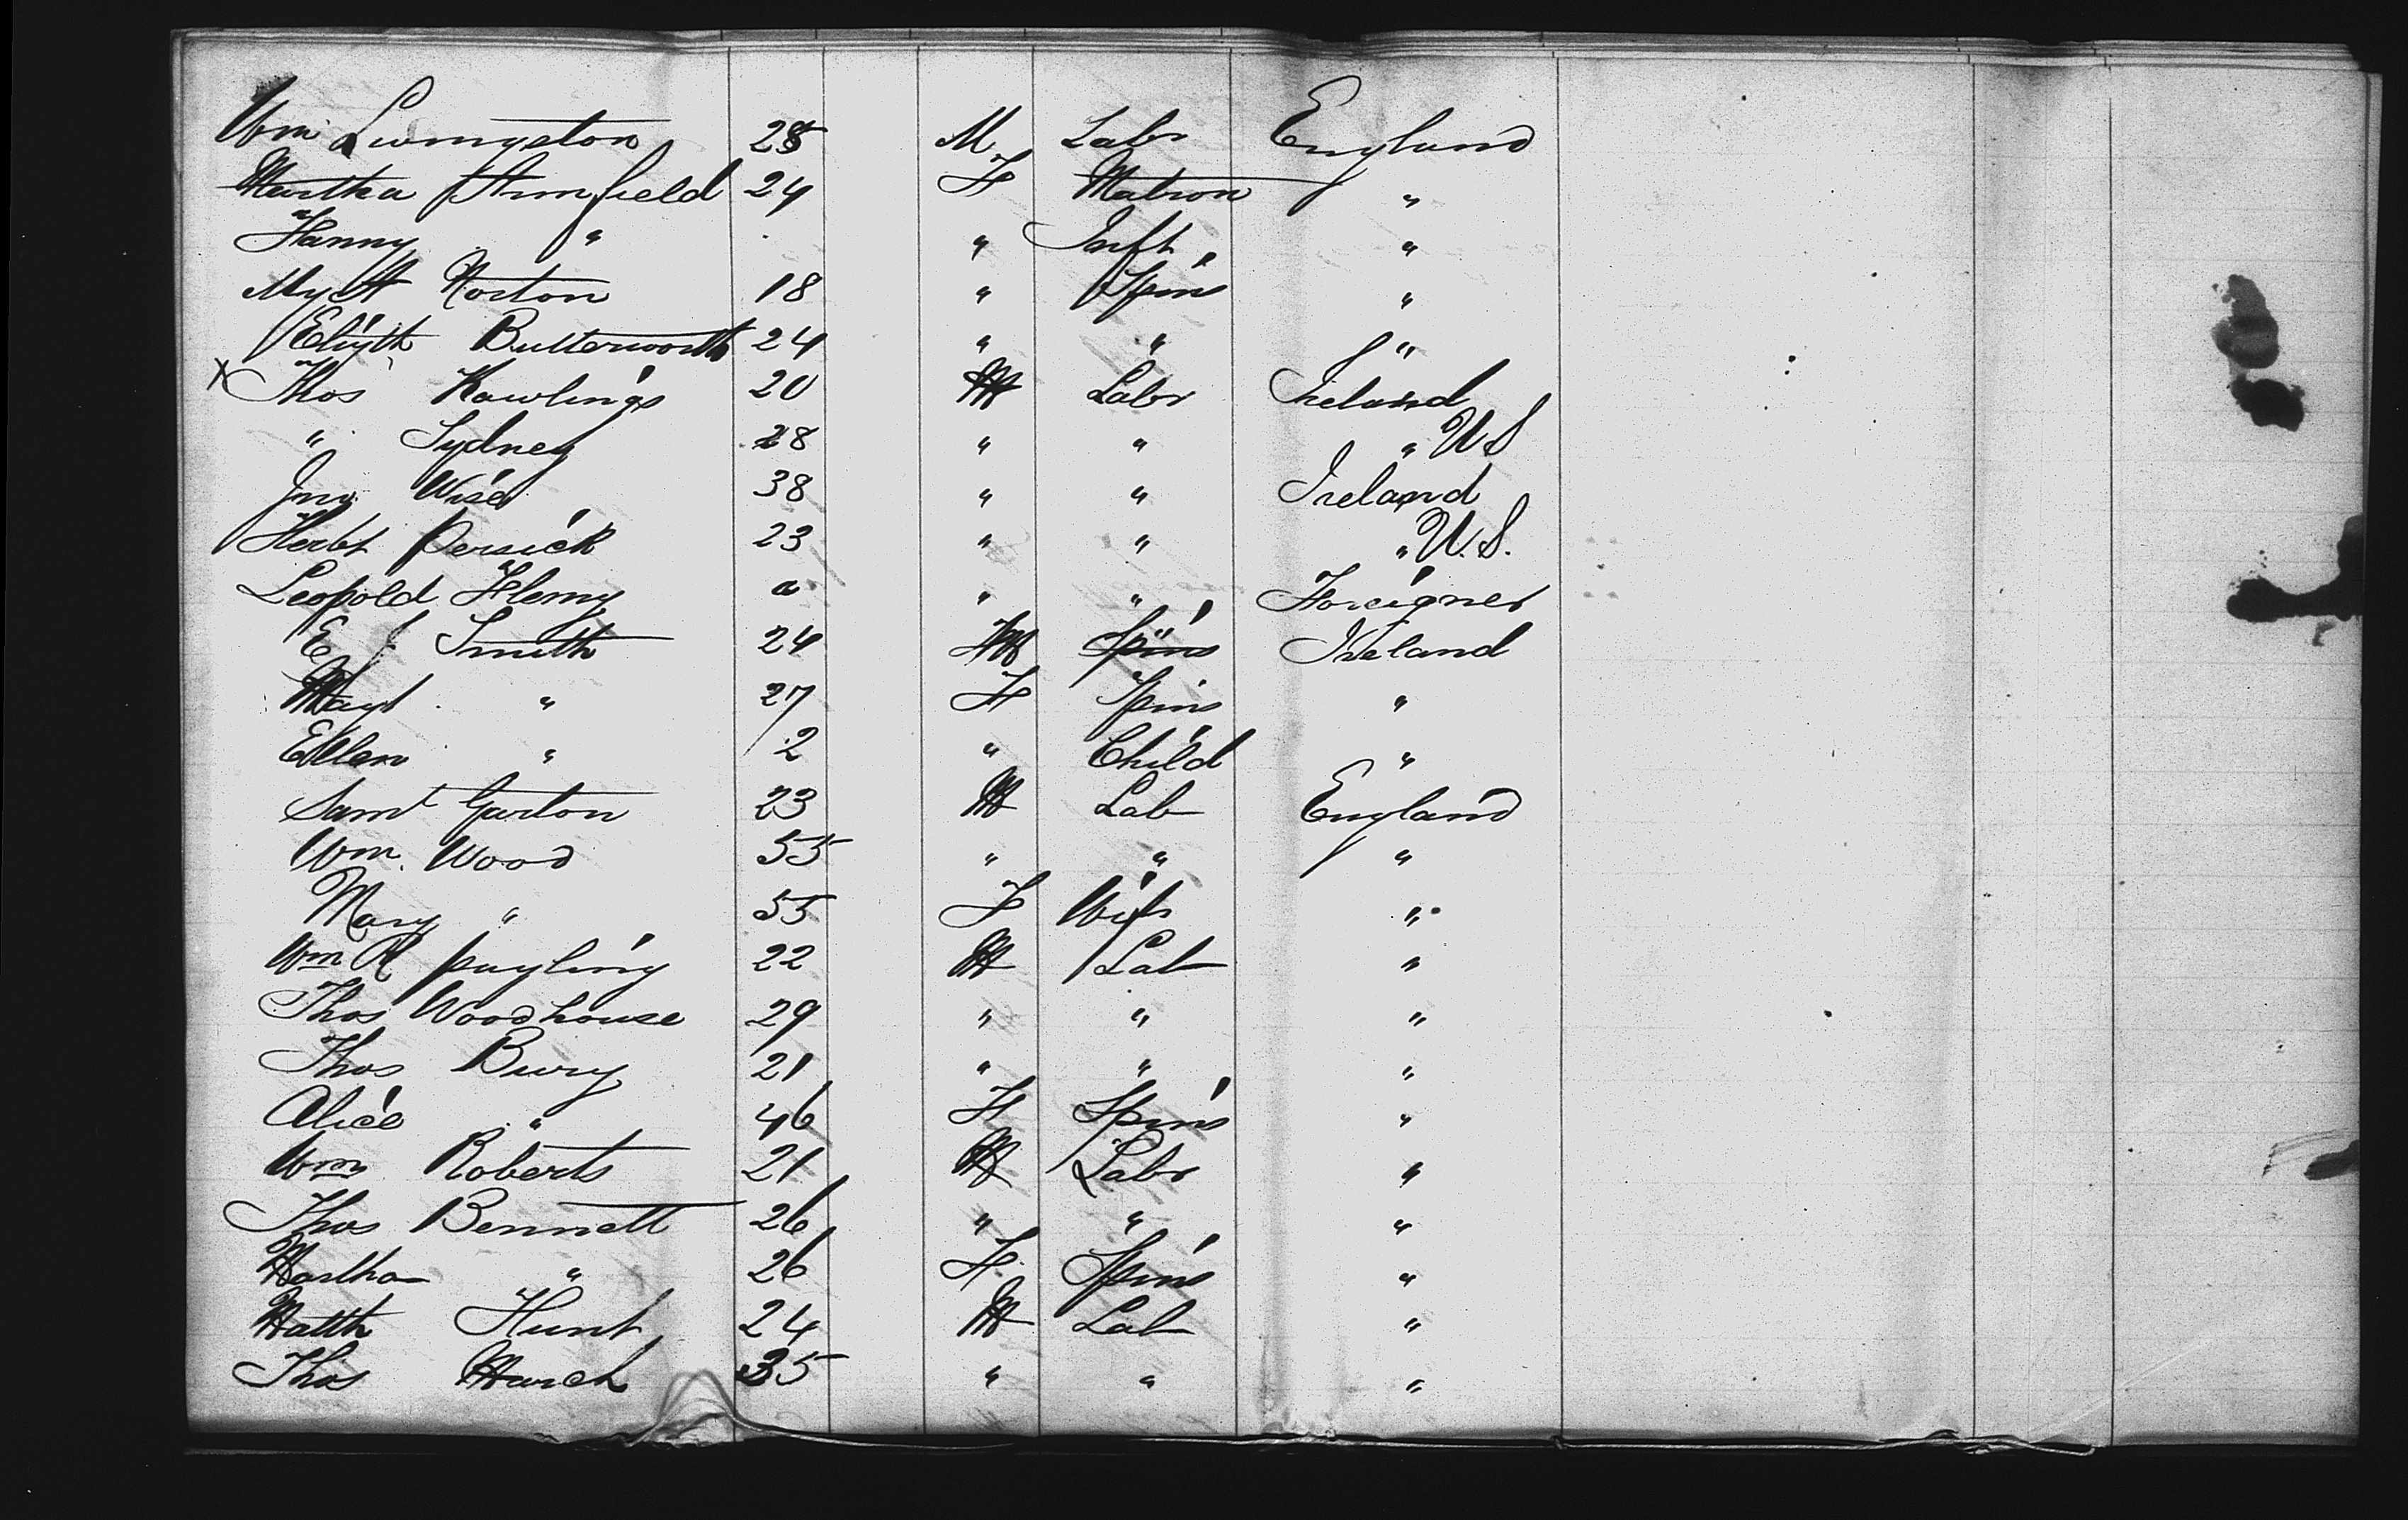 Wm Livingston 28 M Labr England
Martha Armfield 24 F Matron "
Fanny " " Inft "
My A Norton 18 " Spins "
Elizth Butterworth 24 " " "
x Thos Rawlings 20 M Labr Ireland
" Sydney 28 " " " U S
Jno Wise 38 " " Ireland
Herbt Persick 23 " " " U.S.
Leopold " " " Foreigner
E J Smith 24 Spins Ireland
Magt " 27 F Spins "
Ellen " 2 " Child "
Saml Garton 23 M Lab England
Wm. Wood 55 " " "
Mary " 55 F Wife "
Wm R payling 22 M Lab "
Thos Woodhouse 29 " " "
Thos Bury 21 " " "
Alice " 46 F Spins "
Wm Roberts 21 M Labr "
Thos Bennett 26 " " "
Martha " 26 F Spins "
Matth Hunt 24 M Lab "
Thos March 35 " " "